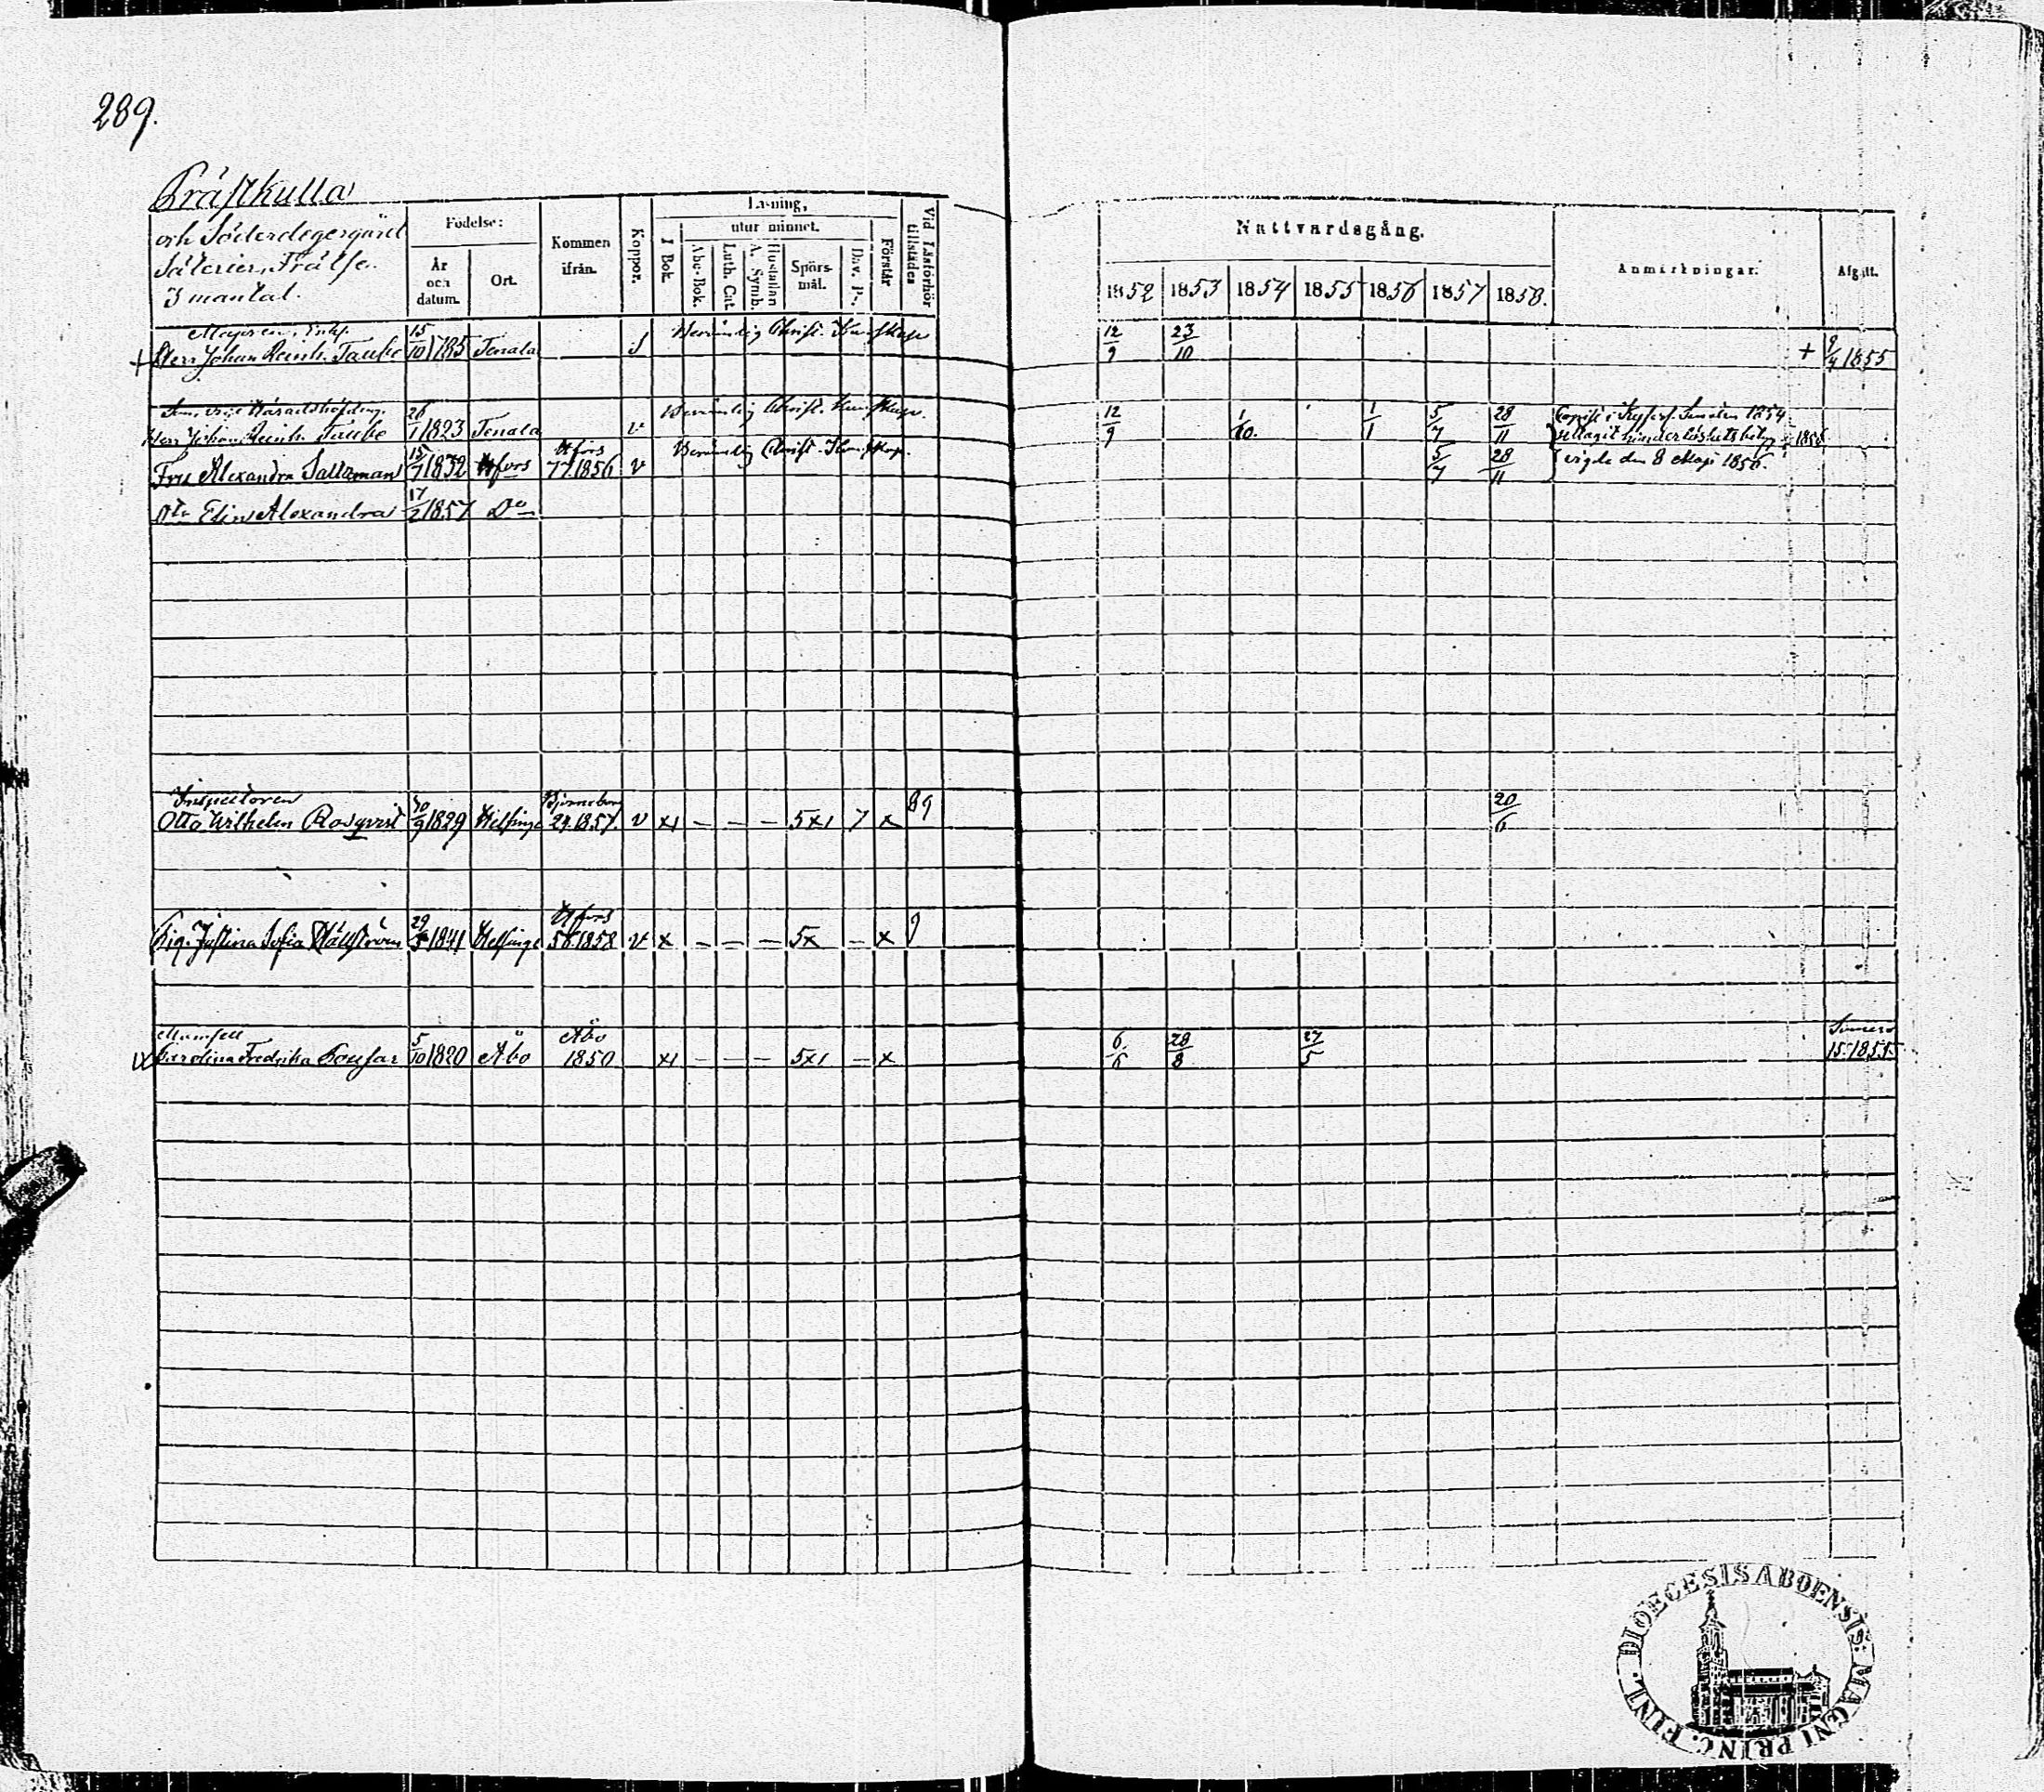 289.
Prästkulla
och Söderdegergård
Säterier, Frälse.
3 mantal.
Födelse:
År och datum.
Ort.
Kommen ifrån.
Koppor.
Läsning,
I Bok.
utur minnet.
Abc-Bok.
Luth. Cat.
Hustaflan A. Symb.
Spörsmål.
Dav. Ps.
Förstår
Vid Läsförhör tillstädes
Nattvardsgång.
1852 1853 1854 1855 1856 1857 1858.
Anmärkningar.
Afgått.
Majoren, Enkl.
+ Herr Johan Reinh. Taube 15/10 1785 Tenala s Berömlig Christ. Kunskap 12/9 23/10 + 9/4 1855
Son, vice Häradshöfding.
Herr Johan Reinh. Taube 26/1 1823 Tenala v Berömlig Christ. Kunskap. 12/9 1/10. 1/1 5/7 28/11 Copist i Kejserl. Senaten 1854.
uttagit hinderlöshetsbetyg 1856
Hfors
Fru Alexandra Saltzman 15/7 1832 Hfors 77.1856 v Berömlig Christ. Kunskap. 5/7 28/11 vigde den 8 Maji 1856.
Dtr Elin Alexandra 17/2 1857 Do
Inspectoren Björneborg 89
Otto Wilhelm Rosqvist 30/9 1829 Helsinge 29.1857. v x1 – – – 5x1 7 x 20/6
Hfors
Pig. Justina Sofia Hällström 29/5 1841 Helsinge 56.1858 v x – – – 5x – x 9
Mamsell Åbo Somero
Carolina Fredrika Bonsar 5/10 1820 Åbo 1850 x1 – – – 5x1 – x 6/6 28/8 27/5 15.1855
DIOECESIS ABOENSIS. MAGNI PRINC. FINL.